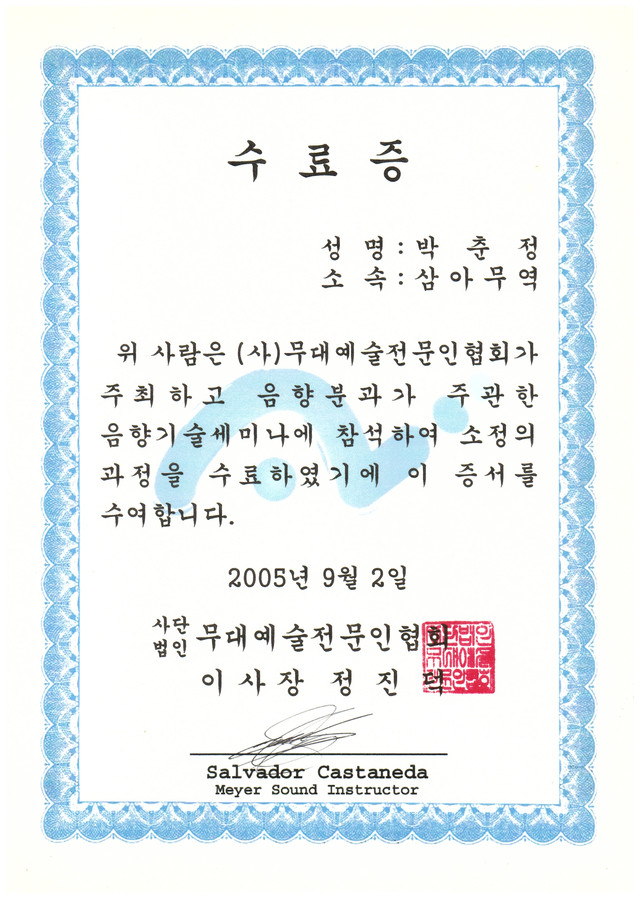 수 료 증
성 명 : 박 춘 정
소 속 : 삼아무역
위 사람은 (사)무대예술전문인협회가
주최하고 음향분과가 주관한
음향기술세미나에 참석하여 소정의
과정을 수료하였기에 이 증서를
수여합니다.
2005년 9월 2일
사단
법인 무대예술전문인협회
이사장 정 진 덕
Salvador Castaneda
Meyer Sound Instructor